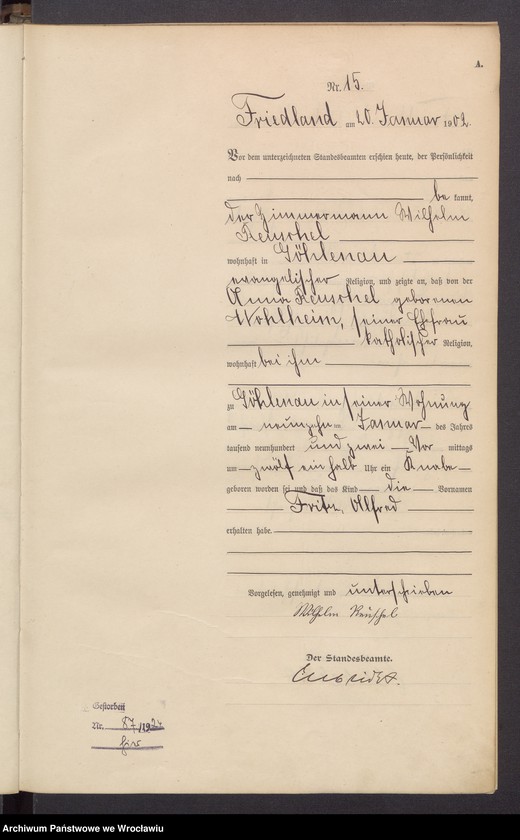 A.
Nr. 15.
Friedland am 20. Januar 1902.
Vor dem unterzeichneten Standesbeamten erschien heute, der Persönlichkeit
nach
be kannt,
der Zimmermann Wilhelm
Reuschel
wohnhaft in Göhlenau
evangelischer Religion, und zeigte an, daß von der
Anna Reuschel geborenen
Wohlheim, seiner Ehefrau
katholischer Religion,
wohnhaft bei ihm
zu Göhlenau in seiner Wohnung
am neunzehn ten Januar des Jahres
tausend neunhundert und zwei Vor mittags
um zwölf ein halb Uhr ein Knabe
geboren worden sei und daß das Kind die Vornamen
Fritz, Alfred
erhalten habe.
Vorgelesen, genehmigt und unterschrieben
Wilhelm Reuschel
Der Standesbeamte.
Gestorben
Nr. 87/1924
hier
Archiwum Państwowe we Wrocławiu